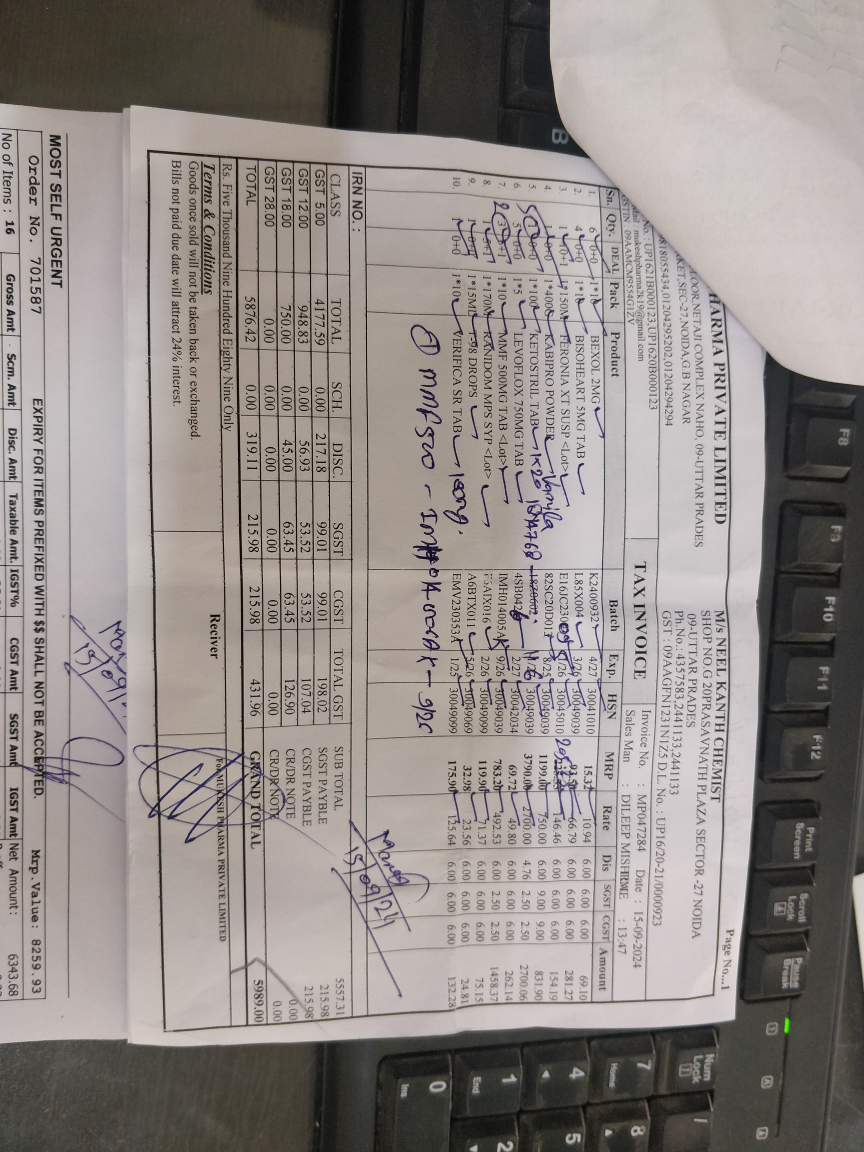 Page No...1
HARMA PRIVATE LIMITED
LOOR, NETAJI COMPLEX NAHO, 09-UTTAR PRADES
KET, SEC-27 NOIDA, G.B NAGAR
818055434,01204295202,01204294294
No. : UP1621B000123,UP1620B000123
mail : mukeshpharma2k19@gmail.com
GSTIN : 09AAMCM9554G1ZV
TAX INVOICE
M/s NEEL KANTH CHEMIST
SHOP NO.G 20PRASAVNATH PLAZA SECTOR -27 NOIDA
09-UTTAR PRADES
Ph.No.: 4357583,2441133,2441133
GST : 09AAGFN1231N1Z5 D.L. No. : UP16/20-21/0000923
Invoice No. : MP047284 Date : 15-09-2024
Sales Man : DILEEP MISHR TIME : 13:47
Sn. Qty. DEAL Pack Product Batch Exp. HSN MRP Rate Dis SGST CGST Amount
1. 6 0+0 BEXOL 2MG K2400932 4/27 30041010 15.32 10.94 6.00 6.00 6.00 69.10
2. 4 0+0 BISOHEART 5MG TAB L85X004 3/26 30049039 66.79 6.00 6.00 6.00 281.27
3. FERONIA XT SUSP <Lot> 30045010 146.46 6.00 6.00 6.00 154.19
4. KABIPRO POWDER Vanilla 8/25 30049039 1199.00 750.00 6.00 9.00 9.00 831.90
5. KETOSTRIL TAB 30049039 3790.00 2700.00 4.76 2.50 2.50 2700.06
6. 5 0+0 1*5 LEVOFLOX 750MG TAB 2/27 30042034 69.72 49.80 6.00 6.00 6.00 262.14
7. 1*10 MMF 500MG TAB <Lot> IMH014005AK 9/26 30049039 783.20 492.53 6.00 2.50 2.50 1458.37
8. 1*170M RANIDOM MPS SYP <Lot> 2/26 30049099 119.90 71.37 6.00 6.00 6.00 75.15
9. 1*15ML T-98 DROPS A6BTX011 5/26 30049069 32.98 23.56 6.00 6.00 6.00 24.81
10. 1 0+0 1*10 VERIFICA SR TAB 100mg. EMV230353A 1/25 30049099 175.90 125.64 6.00 6.00 6.00 132.28
15/09/24
IRN NO. :
CLASS TOTAL SCH. DISC. SGST CGST TOTAL GST
GST 5.00 4177.59 0.00 217.18 99.01 99.01 198.02
GST 12.00 948.83 0.00 56.93 53.52 53.52 107.04
GST 18.00 750.00 0.00 45.00 63.45 63.45 126.90
GST 28.00 0.00 0.00 0.00 0.00 0.00 0.00
TOTAL 5876.42 0.00 319.11 215.98 215.98 431.96
SUB TOTAL 5557.31
SGST PAYBLE 215.98
CGST PAYBLE 215.98
CR/DR NOTE 0.00
CR/DR NOTE 0.00
GRAND TOTAL 5989.00
Rs. Five Thousand Nine Hundred Eighty Nine Only
Terms & Conditions
Goods once sold will not be taken back or exchanged.
Bills not paid due date will attract 24% interest.
Reciver
For MUKESH PHARMA PRIVATE LIMITED
15/09/
MOST SELF URGENT
EXPIRY FOR ITEMS PREFIXED WITH $$ SHALL NOT BE ACCEPTED.
Order No. 701587
Mrp.Value: 8259.93
No of Items : 16 Gross Amt Scm. Amt Disc. Amt Taxable Amt. IGST% CGST Amt SGST Amt IGST Amt Net Amount: 6343.68
B
F8
F9
F10
F11
F12
Print Screen
Scroll Lock
Pause Break
Num Lock
/
7 Home
8
4
5
1 End
2
0 Ins